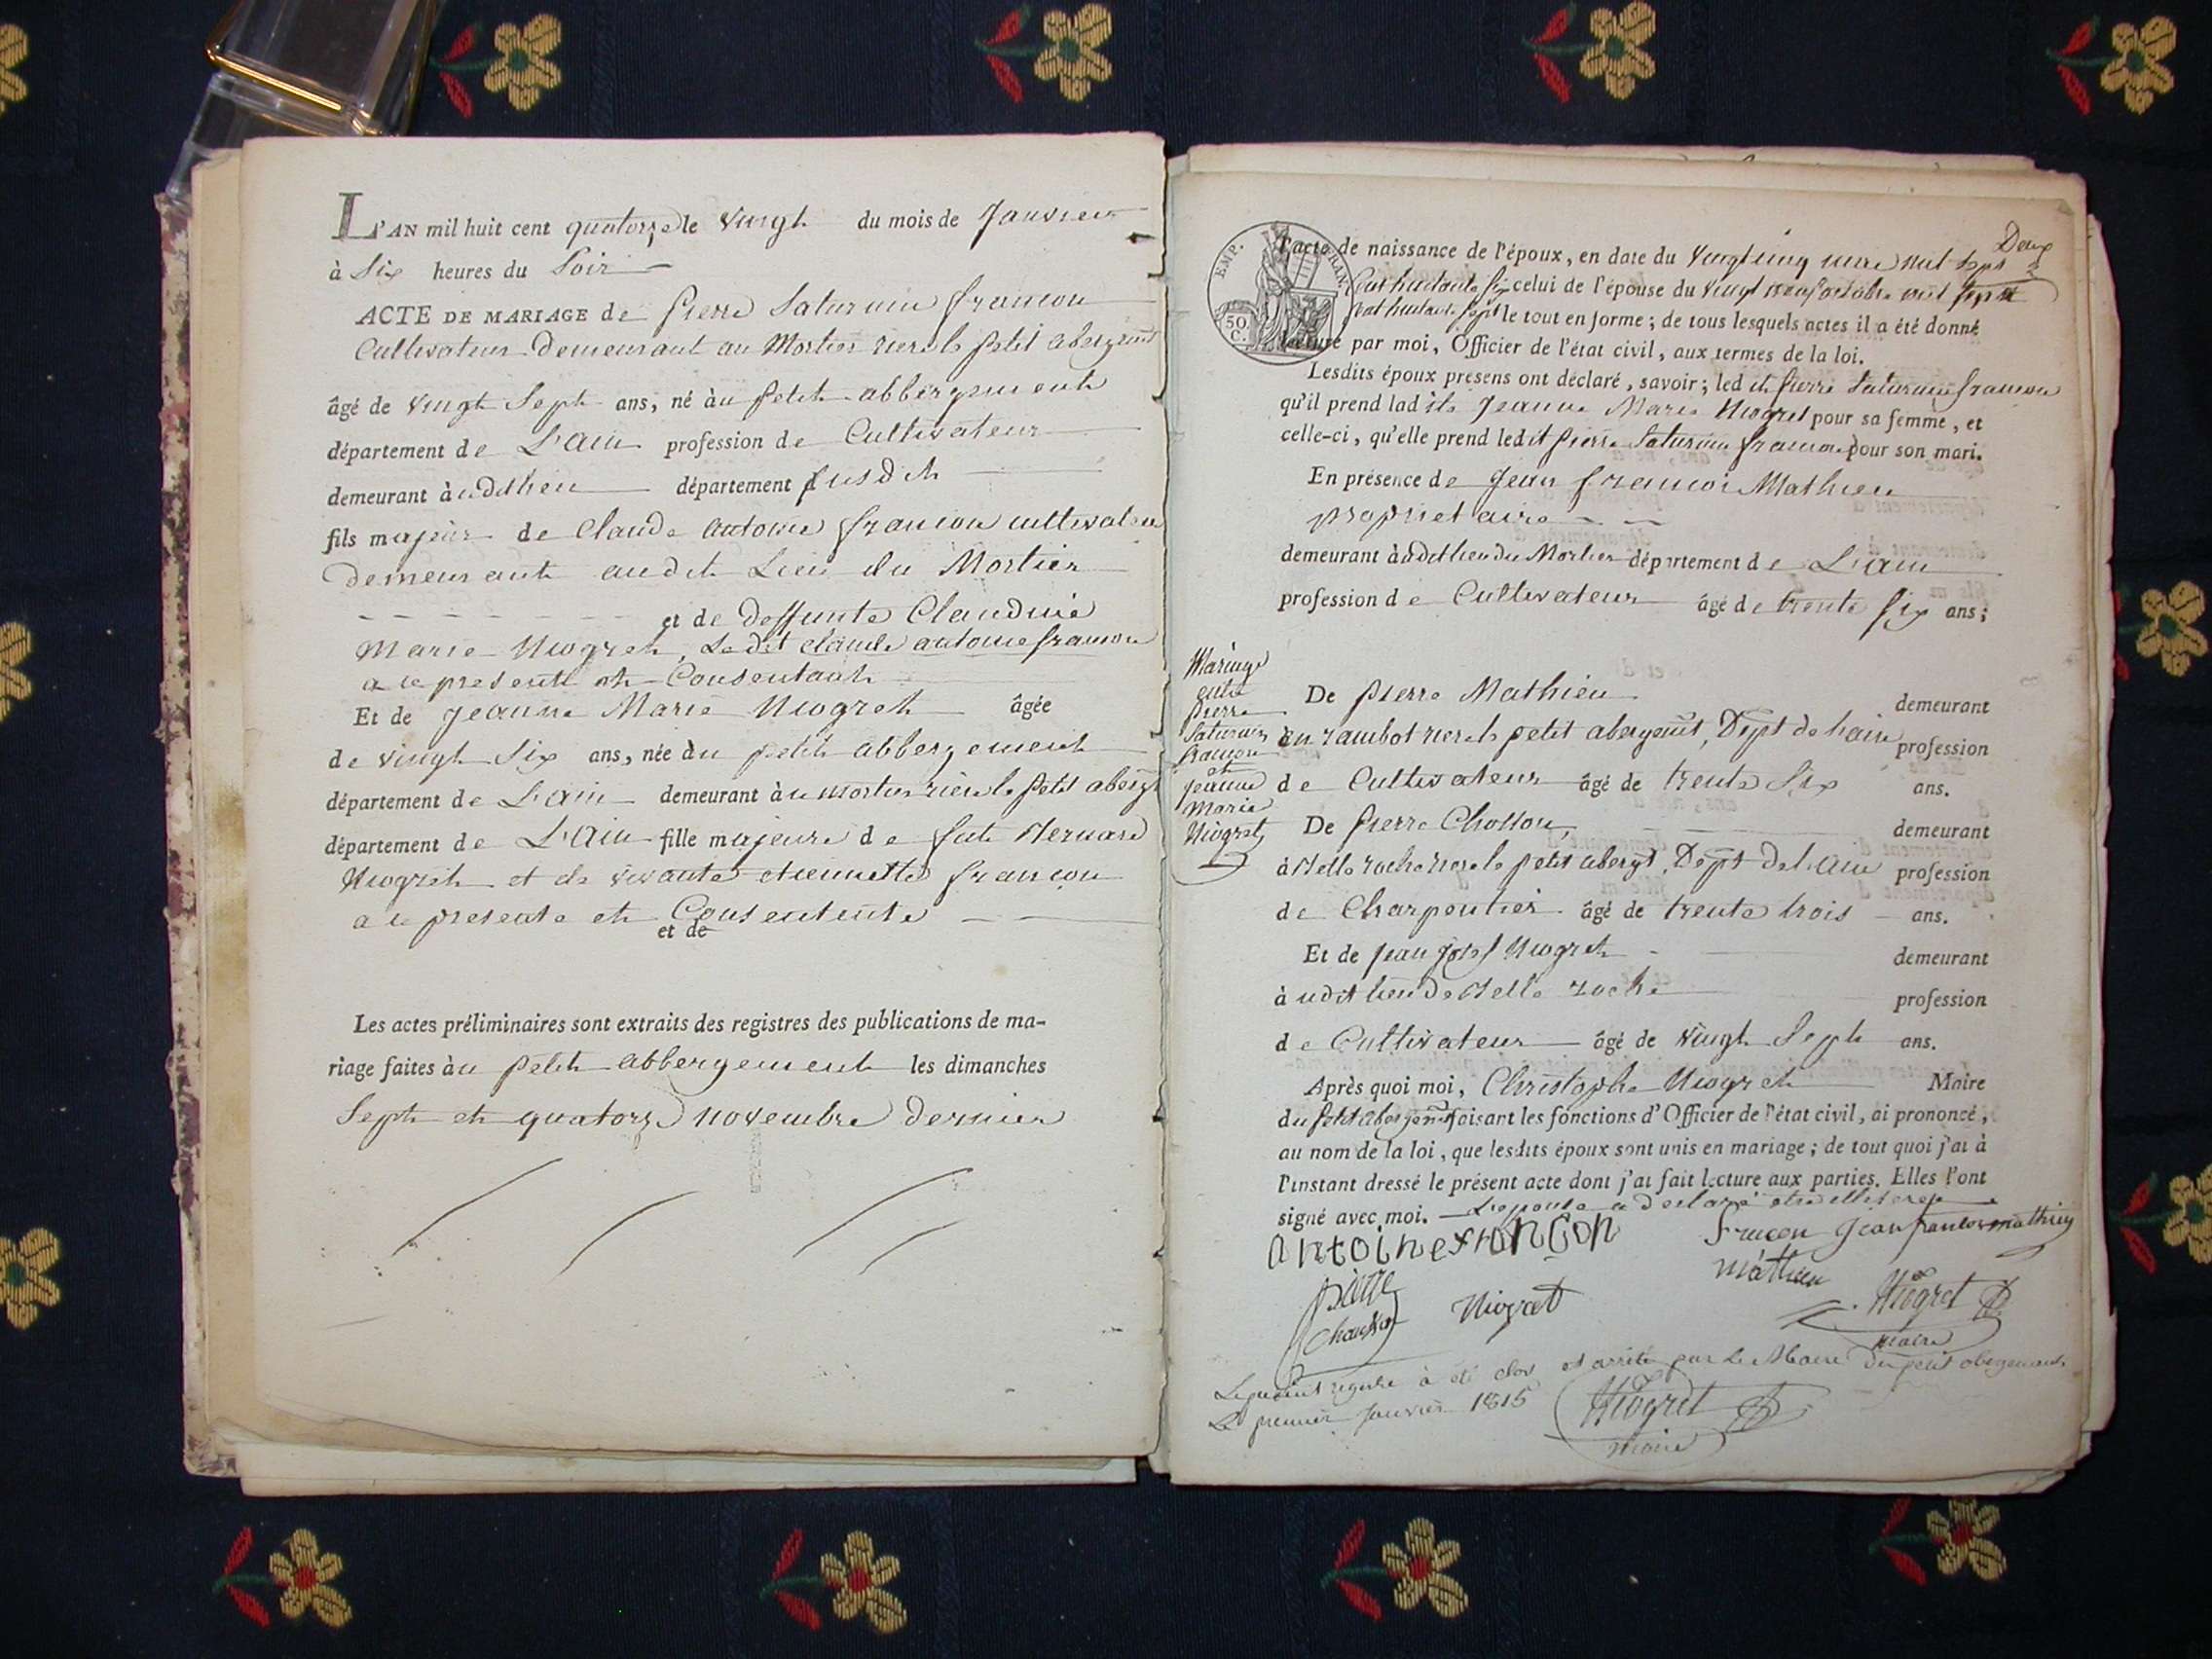 L'AN mil huit cent quatorze le vingt du mois de Janvier
à Six heures du Soir
ACTE DE MARIAGE de Pierre Saturnin francon
Cultivateur demeurant au Mortier riere le petit abergemt
âgé de vingt Sept ans, né au petit abbergement
département de L'ain profession de Cultivateur
demeurant audit lieu département susdit
fils majeur de Claude antoine francon cultivateur
demeurant audit Lieu du Mortier
et de deffunte Claudine
Marie Niogret, Ledit claude antoine francon
a ce present et Consentant
Et de Jeanne Marie Niogret âgée
de vingt Six ans, née au petit abbergement
département de L'ain demeurant au mortier riere le petit abergt
département de L'Ain fille majeure de fut Bernard
Niogret et de vivante etiennette francon
a ce presente et Consentente
et de
Les actes préliminaires sont extraits des registres des publications de ma-
riage faites au petit abbergement les dimanches
Sept et quatorze novembre dernier
Deux
l'acte de naissance de l'époux, en date du vingt cinq mil sept
Cent huitante six celui de l'épouse du vingt neuf octobre mil sept
Cent huitante sept le tout en forme; de tous lesquels actes il a été donné
lecture par moi, Officier de l'état civil, aux termes de la loi.
EMP. FRAN.
50 C.
Lesdits époux présens ont déclaré, savoir; ledit Pierre Saturnin francon
qu'il prend ladite Jeanne Marie Niogret pour sa femme, et
celle-ci, qu'elle prend ledit Pierre Saturnin francon pour son mari.
En présence de Jean francoi Mathieu
propriétaire
demeurant audit lieu du Mortier département de L'ain
profession de Cultivateur âgé de trente six ans;
Mariage
entre
pierre
Saturnin
francon
et
jeanne
Marie
Niogret
De pierre Mathieu demeurant
au rambot riere le petit abergemt, Dept de l'ain profession
de Cultivateur âgé de trente Six ans.
De Pierre Chosson, demeurant
à Belle roche riere le petit abergt, Dept de l'ain profession
de Charpentier âgé de trente trois ans.
Et de jean josef Niogret demeurant
audit lieu de Belle roche profession
de Cultivateur âgé de vingt Sept ans.
Après quoi moi, Christophe Niogret Maire
du petit abergement faisant les fonctions d'Officier de l'état civil, ai prononcé,
au nom de la loi, que lesdits époux sont unis en mariage; de tout quoi j'ai à
l'instant dressé le présent acte dont j'ai fait lecture aux parties. Elles l'ont
signé avec moi. L'epouse a declaré etre
antoine francon francon Jean francois mathieu
mathieu
pierre
chosson Niogret Niogret
maire
Le present registre à été clos et arrêté par le Maire du petit abergement
Le premier Janvier 1815 Niogret
maire